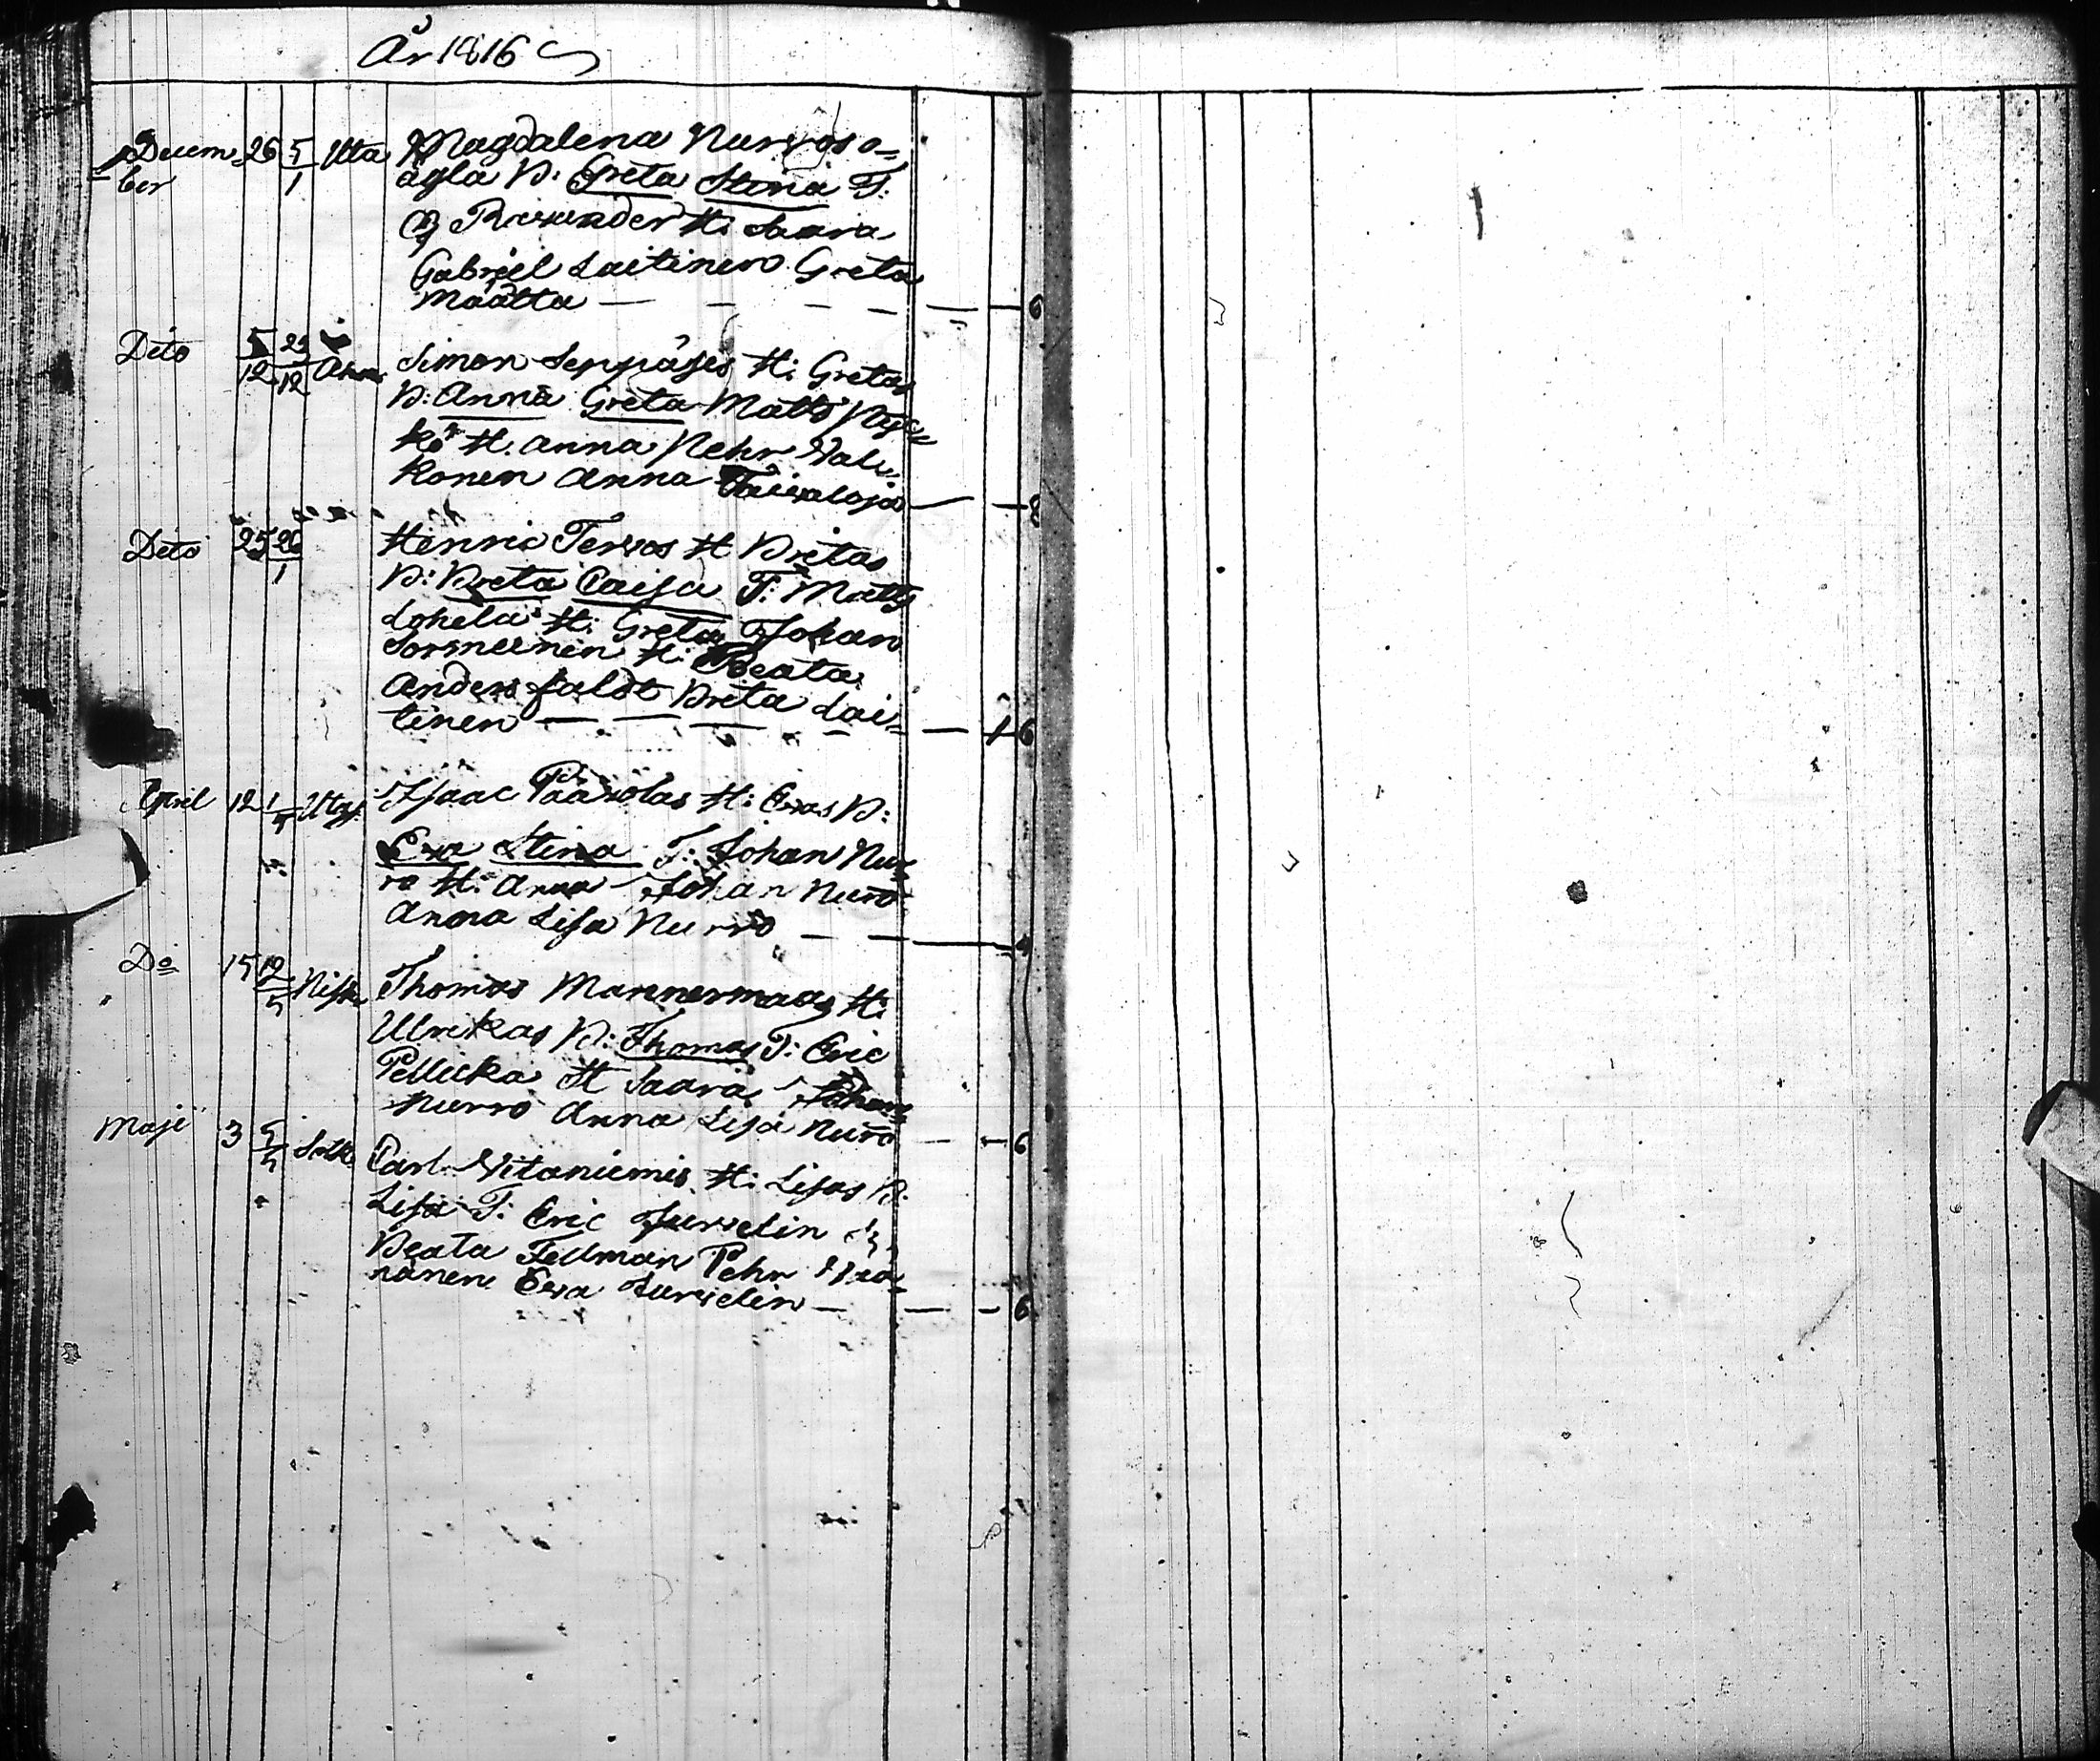 År 1816
Decem= 26 5/1 Uta Magdalena Nurros o=
ber ägta B: Greta Stina F:
Rewender H: Saara
Gabriel Laitinen Greta
Määtta — — — — — 6
Deto 5/12 23/12 Simon Seppäses H: Gretas
B: Anna Greta Matts
ko H. Anna Pehr Valc
konen Anna Taivaloja — — 8
Deto 25 26/1 Henric Tervos H Bretas
B: Breta Caisa F: Matts
Lohela H: Greta Johan
Sormuinen H: Beata
Anders faldt Breta Lai=
tinen — — — — — 1 6
April 12 1/5 Utaj. Isaac Päävolas H: Evas B:
Eva Stina F: Johan Nur=
ro H: Anna Johan Nurro
Anna Lisa Nurro — — — 4
Do 15 12/5 Niska Thomas Mannermaas H:
Ulrikas B: Thomas F: Eric
Pellicka H Saara Johan
Nurro Anna Lisa Nurro — — 6
Maji 3 5/5 Sotk Carl Vitaniemis H: Lisas B:
Lisa F: Eric Jurvelin
Beata Fellman Pehr
nänen Eva Jurvelin — — — 6